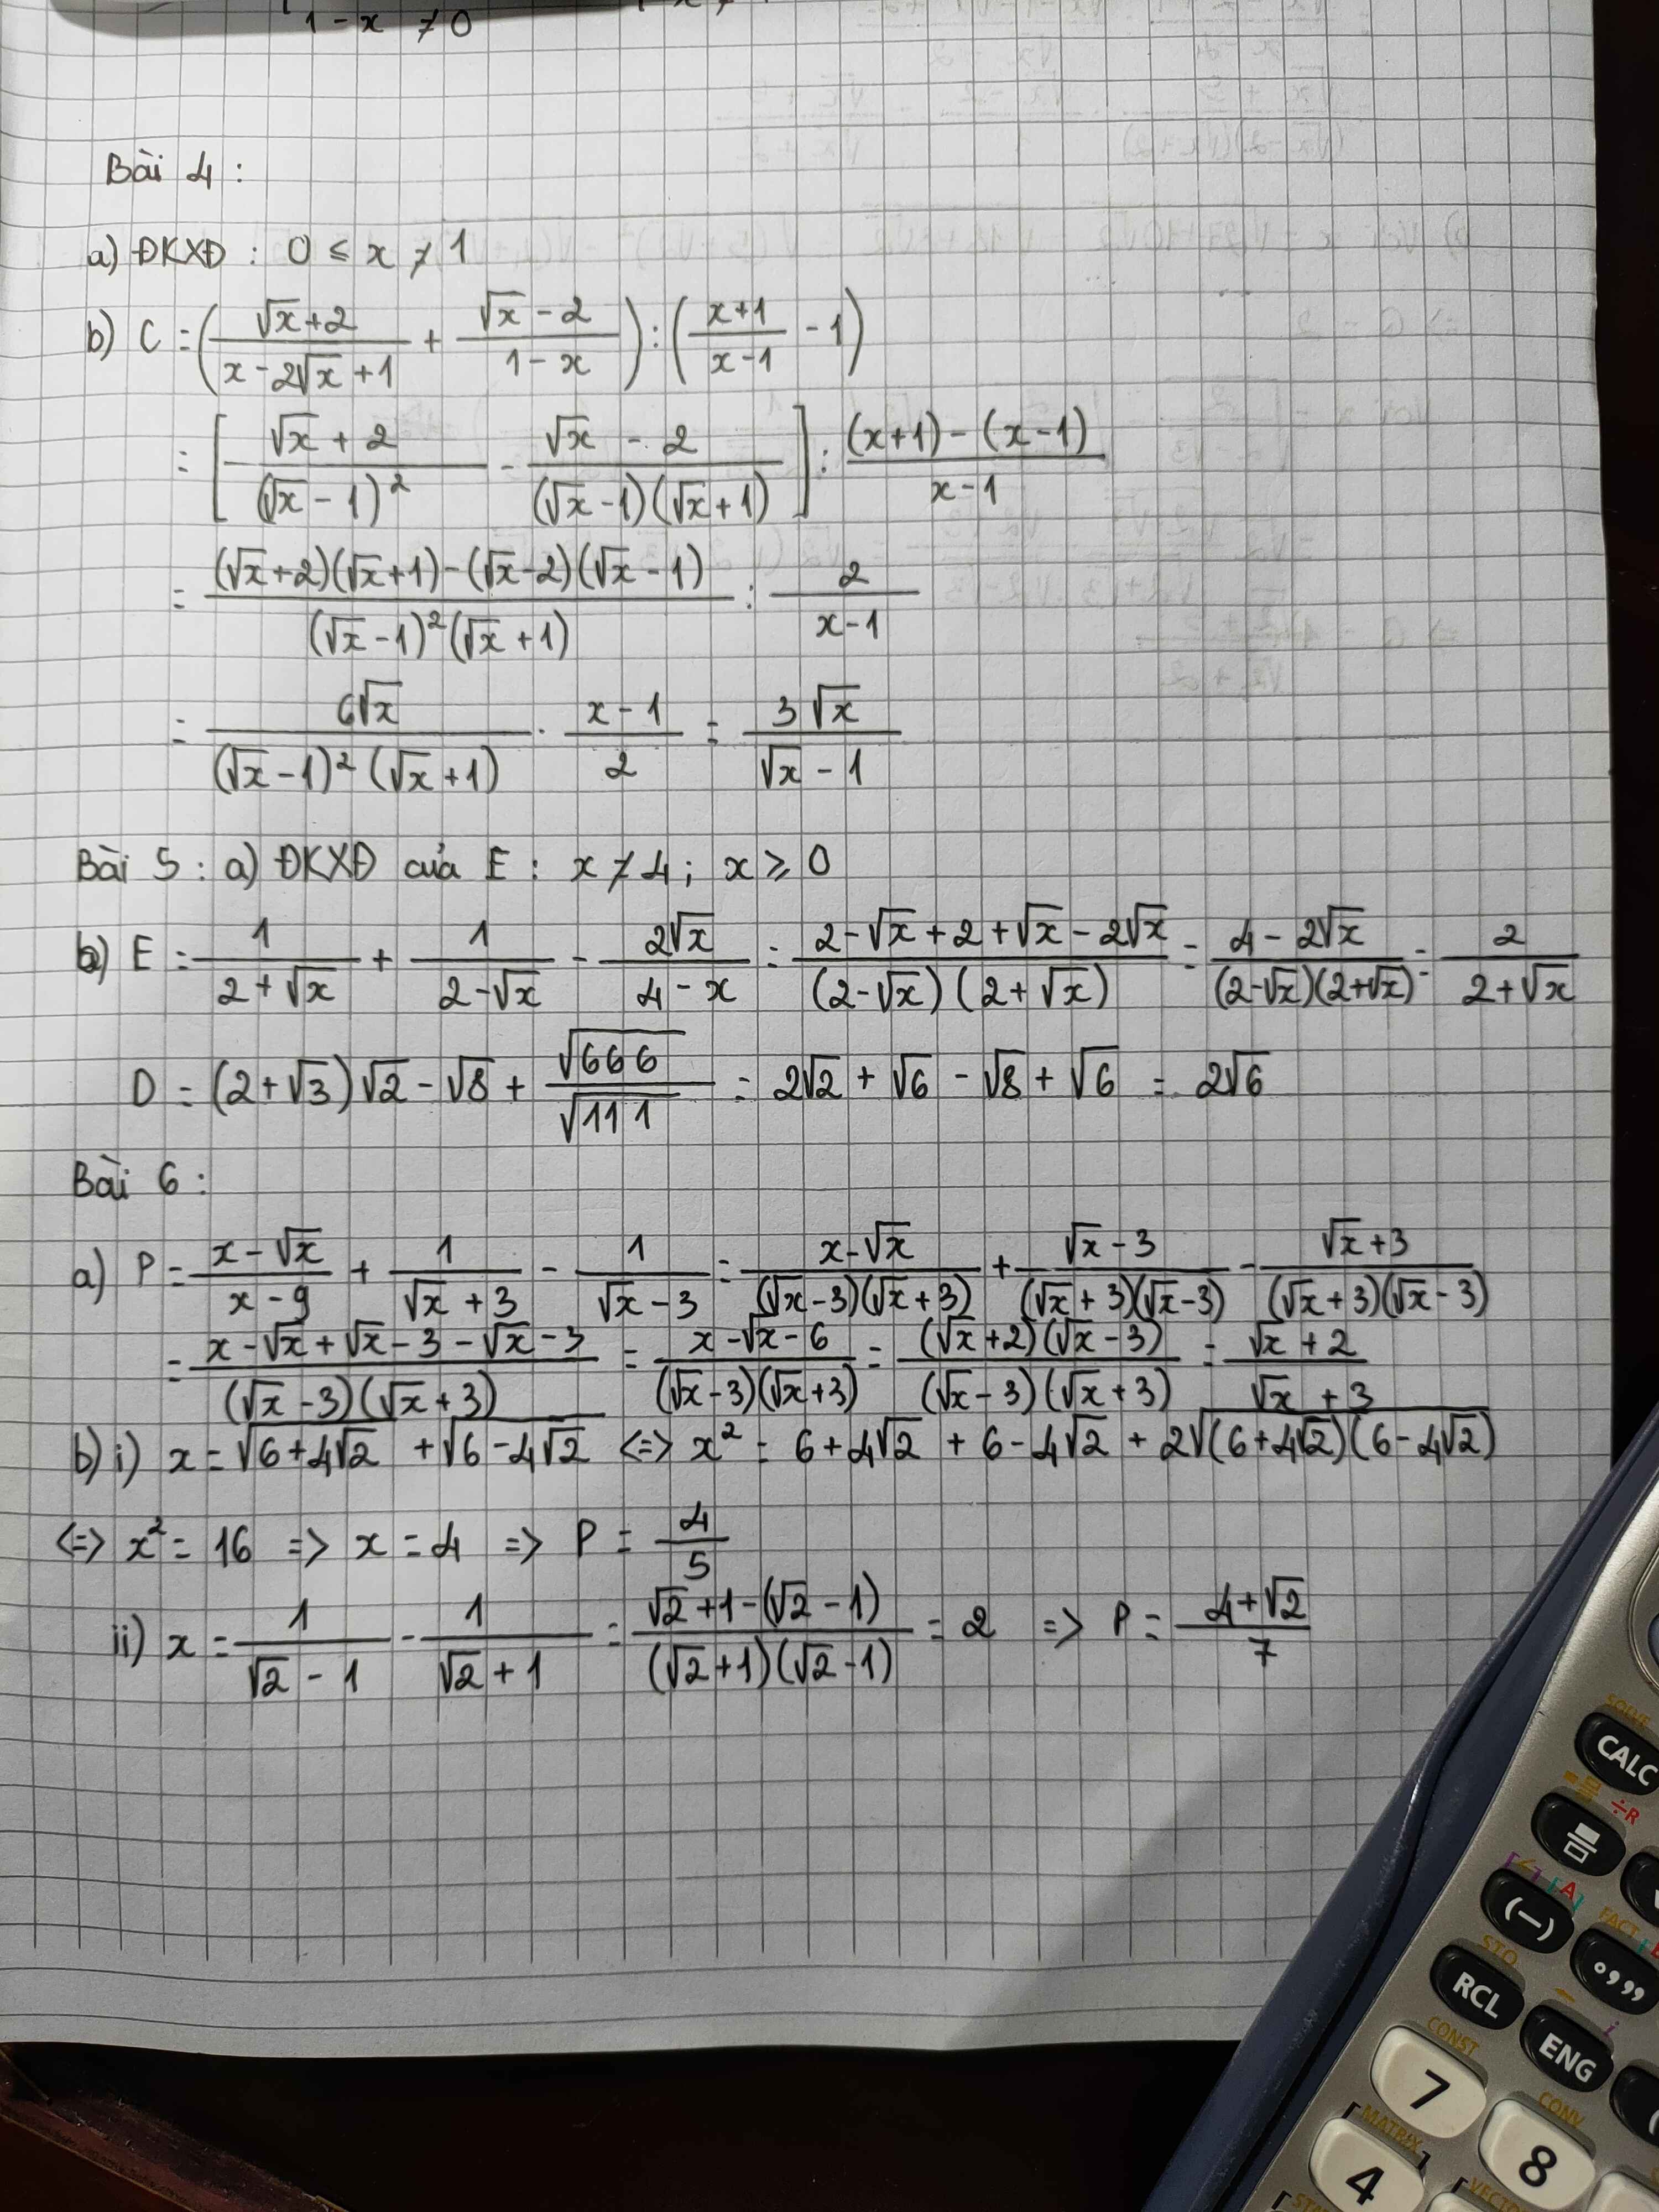 1 - x ≠ 0
Bài 4 :
a) ĐKXĐ : 0 ≤ x ≠ 1
b) C = ( (√x + 2)/(x - 2√x + 1) + (√x - 2)/(1 - x) ) : ( (x+1)/(x-1) - 1 )
= [ (√x + 2)/(√x - 1)² - (√x - 2)/((√x - 1)(√x + 1)) ] : ((x+1) - (x-1))/(x-1)
= ((√x+2)(√x+1) - (√x-2)(√x-1))/((√x-1)²(√x+1)) : 2/(x-1)
= 6√x/((√x-1)²(√x+1)) · (x-1)/2 = 3√x/(√x - 1)
Bài 5 : a) ĐKXĐ của E : x ≠ 4 ; x ≥ 0
b) E = 1/(2+√x) + 1/(2-√x) - 2√x/(4-x) = (2-√x+2+√x-2√x)/((2-√x)(2+√x)) = (4-2√x)/((2-√x)(2+√x)) = 2/(2+√x)
D = (2+√3)√2 - √8 + √666/√111 = 2√2 + √6 - √8 + √6 = 2√6
Bài 6 :
a) P = (x-√x)/(x-9) + 1/(√x+3) - 1/(√x-3) = (x-√x)/((√x-3)(√x+3)) + (√x-3)/((√x+3)(√x-3)) - (√x+3)/((√x+3)(√x-3))
= (x-√x+√x-3-√x-3)/((√x-3)(√x+3)) = (x-√x-6)/((√x-3)(√x+3)) = ((√x+2)(√x-3))/((√x-3)(√x+3)) = (√x+2)/(√x+3)
b) i) x = √(6+4√2) + √(6-4√2) <=> x² = 6+4√2 + 6-4√2 + 2√((6+4√2)(6-4√2))
<=> x² = 16 => x = 4 => P = 4/5
ii) x = 1/(√2-1) - 1/(√2+1) = (√2+1-(√2-1))/((√2+1)(√2-1)) = 2 => P = (4+√2)/7
SOLVE
CALC
÷R
(-)
FACT
STO
RCL
i
ENG
CONST
7
CONV
8
MATRIX
4